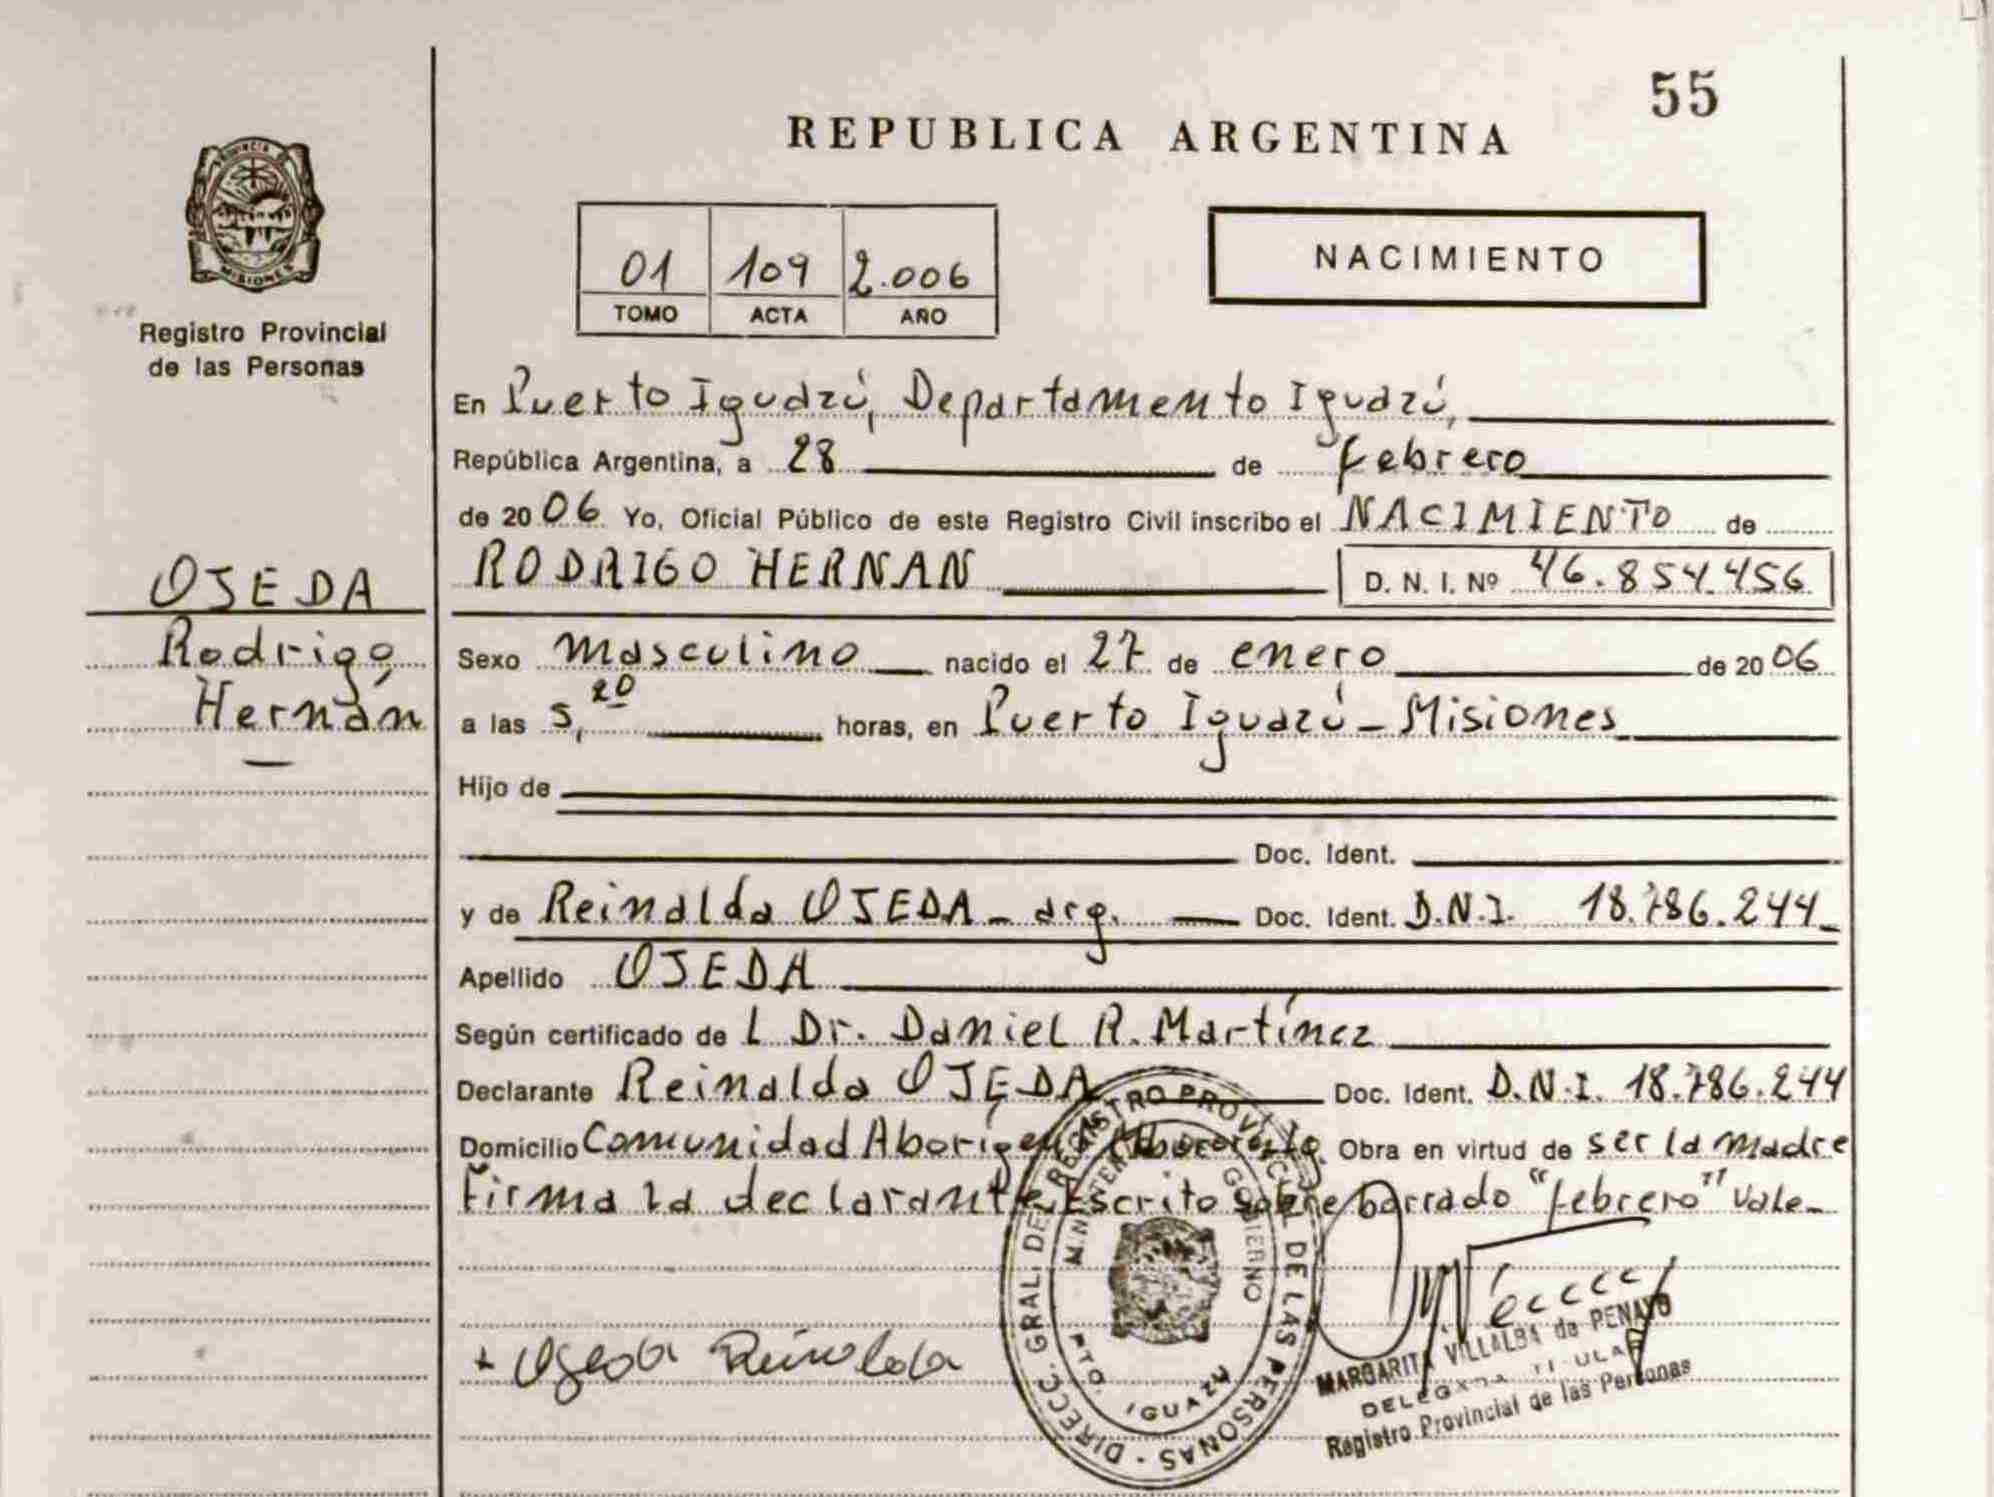 55
REPUBLICA ARGENTINA
PROVINCIA DE
MISIONES
Registro Provincial
de las Personas
01 109 2.006
TOMO ACTA AÑO
NACIMIENTO
En Puerto Iguazú, Departamento Iguazú,
República Argentina, a 28 de febrero
de 2006 Yo, Oficial Público de este Registro Civil inscribo el NACIMIENTO de
RODRIGO HERNAN D. N. I. Nº 46.854.456
OJEDA
Rodrigo
Hernán
Sexo masculino nacido el 27 de enero de 2006
a las 5,20 horas, en Puerto Iguazú - Misiones
Hijo de
Doc. Ident.
y de Reinalda OJEDA - arg. Doc. Ident. D.N.I. 18.786.244
Apellido OJEDA
Según certificado de L Dr. Daniel R. Martínez
Declarante Reinalda OJEDA Doc. Ident. D.N.I. 18.786.244
Domicilio Comunidad Aborigen Obra en virtud de ser la madre
Firma la declarante Escrito sobre borrado "febrero" Vale-
Ojeda Reinalda
DIRECC. GRAL. DEL REGISTRO PROVINCIAL DE LAS PERSONAS
MINISTERIO DE GOBIERNO
PTO. IGUAZU
MARGARITA VILLALBA de PENAYO
DELEGADA TITULAR
Registro Provincial de las Personas